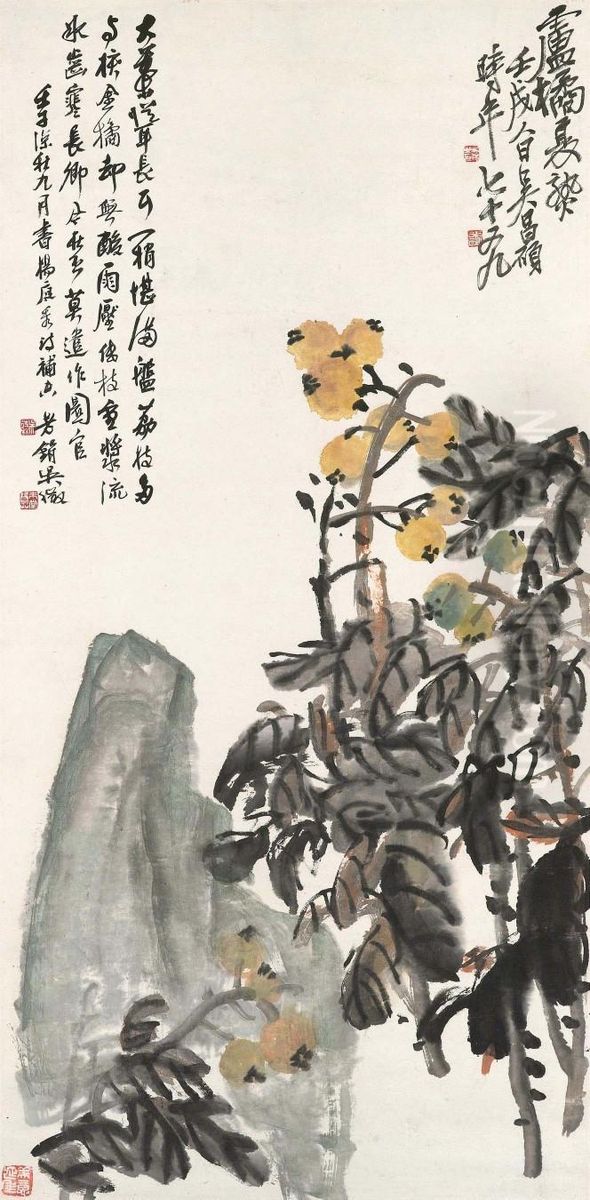 盧橘夏熟
壬戌人日吳昌碩
時年七十又九
大葉聳長耳一梢堪滿盤荔枝分
與核金橘却無酸雨壓低枝重漿流
冰齒寒長卿今在否莫遣作園官
壬子深秋九月書楊廷秀詩補空